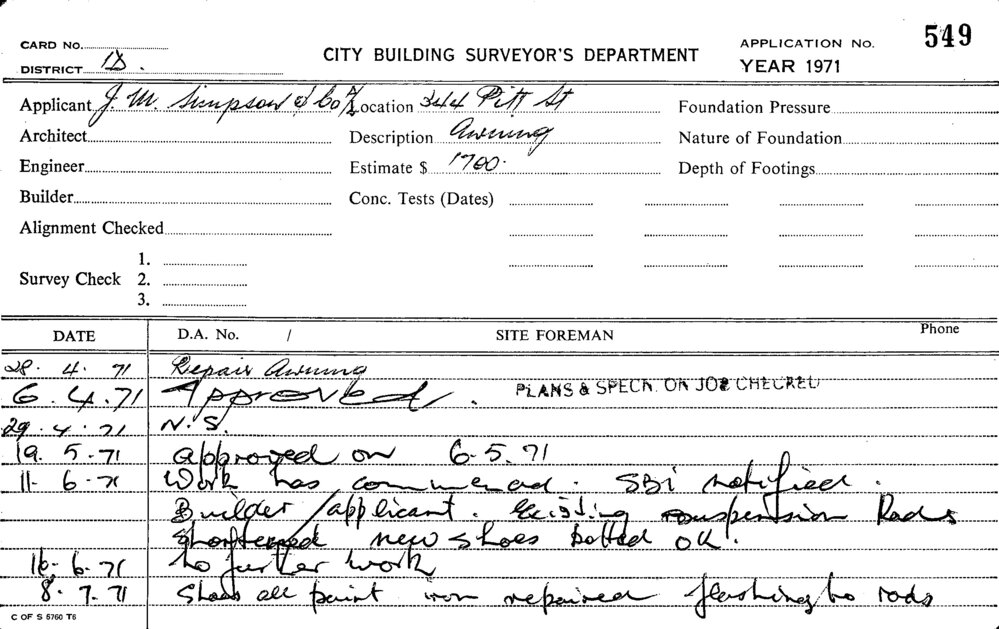 CARD No.
DISTRICT
CITY BUILDING SURVEYOR'S DEPARTMENT
APPLICATION No. 549
YEAR 1971
Applicant J. M. Simpson & Co Location 344 Pitt St Foundation Pressure
Architect Description Awning Nature of Foundation
Engineer Estimate $ 1700. Depth of Footings
Builder Conc. Tests (Dates)
Alignment Checked
1.
Survey Check 2.
3.
DATE D.A. No. / SITE FOREMAN Phone
28. 4. 71 Repair Awning
6. 4. 71 Approved. PLANS & SPECN. ON JOB CHECKED
29. 4. 71 N.S.
19. 5. 71 approved on 6.5.71
11. 6. 71 Work has commenced. SBI notified.
Builder/applicant. Existing suspension Rods
shortened new shoes bolted OK.
16. 6. 71 no further work
8. 7. 71 Shoes all paint iron repaired flashing to rods
C OF S 5760 T6